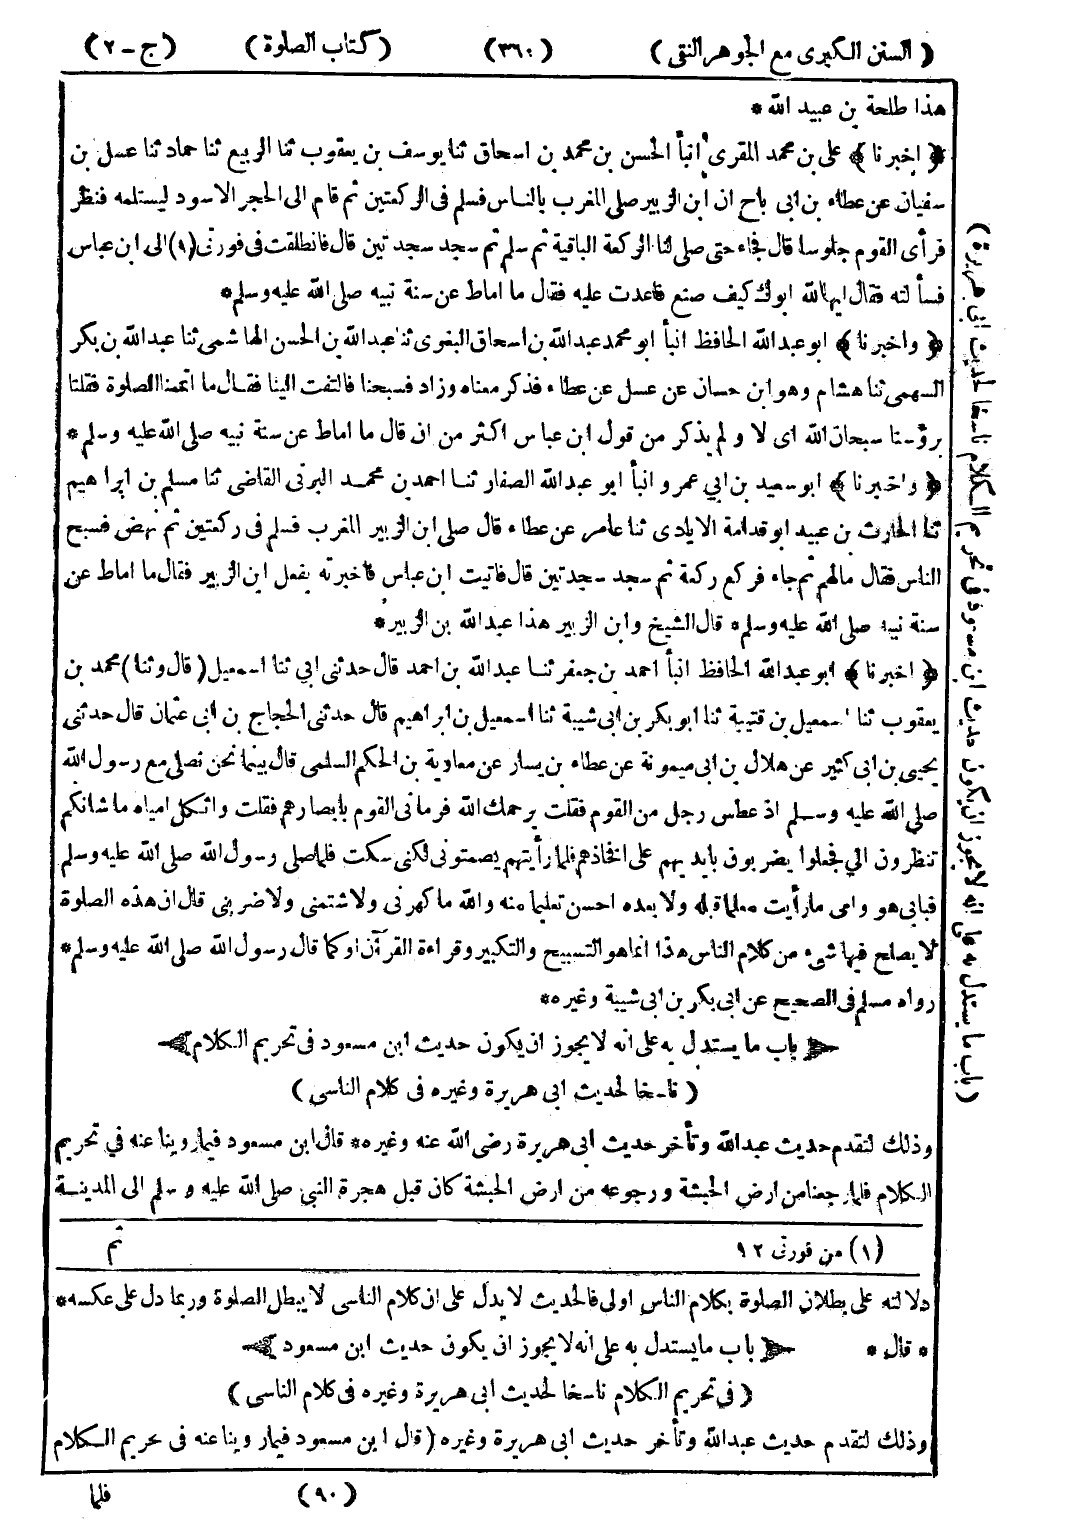 ( السنن الكبرى مع الجوهر النقى )
(٣٦٠)
( كتاب الصلوة )
( ج - ٢ )
هذا طلحة بن عبيد الله *
﴿ اخبرنا ﴾ على بن محمد المقرى أنبأ الحسن بن محمد بن اسحاق ثنا يوسف بن يعقوب ثنا الربيع ثنا حماد ثنا عسل بن
سفيان عن عطاء بن ابى باح ان ابن الزبير صلى المغرب بالناس فسلم فى الركعتين ثم قام الى الحجر الاسود ليستلمه فنظر
فرأى القوم جلوسا قال فجاء حتى صلى لنا الركعة الباقية ثم سلم ثم سجد سجدتين قال فانطلقت فى فورتى (١) الى ابن عباس
فسألته فقال ايها لله ابوك كيف صنع فاعدت عليه فقال ما اماط عن سنة نبيه صلى الله عليه وسلم *
﴿ واخبرنا ﴾ ابو عبد الله الحافظ انبأ ابو محمد عبد الله بن اسحاق البغوى ثنا عبد الله بن الحسن الهاشمى ثنا عبد الله بن بكر
السهمى ثنا هشام وهو ابن حسان عن عسل عن عطاء فذكر معناه وزاد فسبحنا فالتفت الينا فقال ما اتممنا الصلوة فقلنا
برؤسنا سبحان الله اى لا ولم يذكر من قول ابن عباس اكثر من ان قال ما اماط عن سنة نبيه صلى الله عليه وسلم *
﴿ واخبرنا ﴾ ابو سعيد بن ابي عمرو انبأ ابو عبد الله الصفار ثنا احمد بن محمد البرتى القاضى ثنا مسلم بن ابراهيم
ثنا الحارث بن عبيد ابو قدامة الايادى ثنا عامر عن عطاء قال صلى ابن الزبير المغرب فسلم فى ركعتين ثم نهض فسبح
الناس فقال مالهم ثم جاء فركع ركعة ثم سجد سجدتين قال فاتيت ابن عباس فاخبرته بفعل ابن الزبير فقال ما اماط عن
سنة نبيه صلى الله عليه وسلم * قال الشيخ وابن الزبير هذا عبد الله بن الزبير *
﴿ اخبرنا ﴾ ابو عبد الله الحافظ انبأ احمد بن جعفر ثنا عبد الله بن احمد قال حدثنى ابي ثنا اسمعيل ( قال وثنا ) محمد بن
يعقوب ثنا اسمعيل بن قتيبة ثنا ابو بكر بن ابى شيبة ثنا اسمعيل بن ابراهيم قال حدثنى الحجاج بن ابى عثمان قال حدثنى
يحيى بن ابى كثير عن هلال بن ابى ميمونة عن عطاء بن يسار عن معاوية بن الحكم السلمى قال بينما نحن نصلى مع رسول الله
صلى الله عليه وسلم اذ عطس رجل من القوم فقلت يرحمك الله فرمانى القوم بابصارهم فقلت واثكل امياه ما شانكم
تنظرون الي فجعلوا يضربون بايديهم على افخاذهم فلما رأيتهم يصمتونى لكنى سكت فلما صلى رسول الله صلى الله عليه وسلم
فبابى هو وامى ما رأيت معلما قبله ولا بعده احسن تعليما منه والله ما كهرنى ولا شتمنى ولا ضربنى قال ان هذه الصلوة
لا يصلح فيها شىء من كلام الناس هذا انما هو التسبيح والتكبير وقراءة القرآن او كما قال رسول الله صلى الله عليه وسلم *
رواه مسلم فى الصحيح عن ابى بكر بن ابى شيبة وغيره *
باب ما يستدل به على انه لا يجوز ان يكون حديث ابن مسعود فى تحريم الكلام
( ناسخا لحديث ابى هريرة وغيره فى كلام الناسى )
وذلك لتقدم حديث عبد الله وتأخر حديث ابى هريرة رضى الله عنه وغيره * قال ابن مسعود فيما روينا عنه في تحريم
الكلام فلما رجعنا من ارض الحبشة ورجوعه من ارض الحبشة كان قبل هجرة النبى صلى الله عليه وسلم الى المدينة
(١) من فورتى ١٢
ثم
دلالته على بطلان الصلوة بكلام الناس اولى فالحديث لا يدل على ان كلام الناسى لا يبطل الصلوة وربما دل على عكسه *
* قال * باب ما يستدل به على انه لا يجوز ان يكون حديث ابن مسعود
( فى تحريم الكلام ناسخا لحديث ابى هريرة وغيره فى كلام الناسى )
وذلك لتقدم حديث عبد الله وتأخر حديث ابى هريرة وغيره ( قال ابن مسعود فيما روينا عنه فى تحريم الكلام
(٩٠)
فلما
( باب ما يستدل به على انه لا يجوز ان يكون حديث ابن مسعود فى تحريم الكلام ناسخا لحديث ابى هريرة )